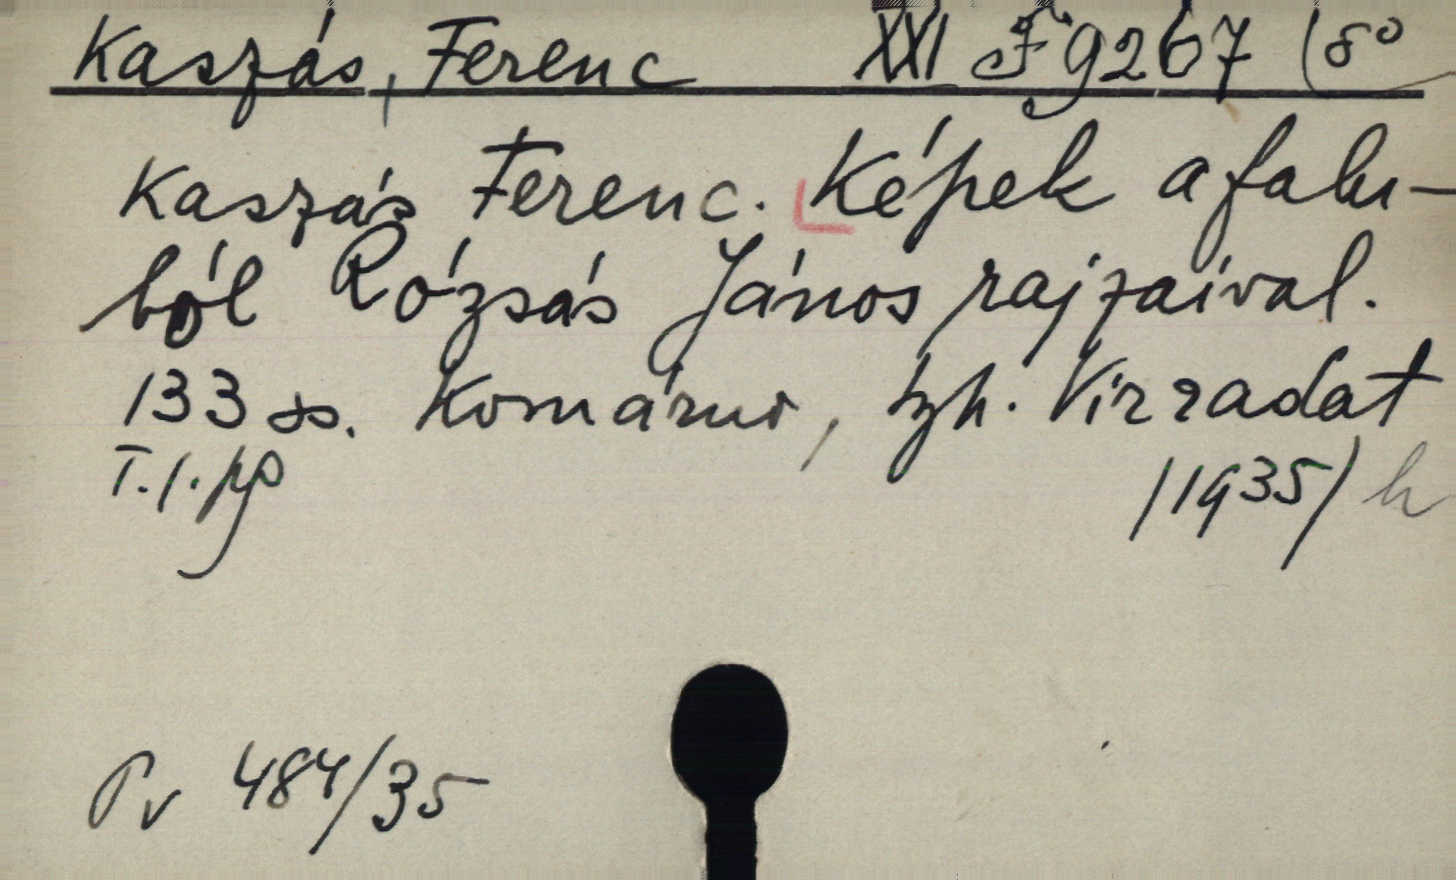 Kaszás, Ferenc XXI F 9267 (8°
Kaszás Ferenc. Képek a falu-
ból Rózsás János rajzaival.
133 ss. Komárno, Virradat
T. I. /1935/
Pv 484/35